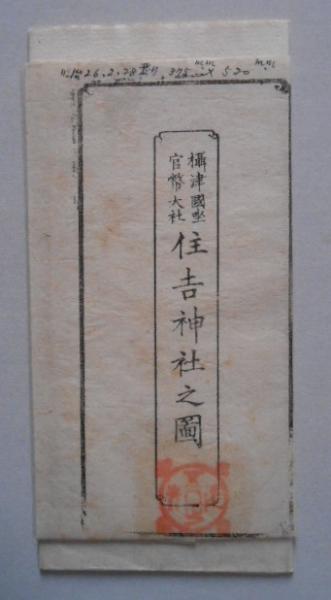 26.2.28 375mm × 520mm
攝津國坐
官幣大社
住吉神社之圖